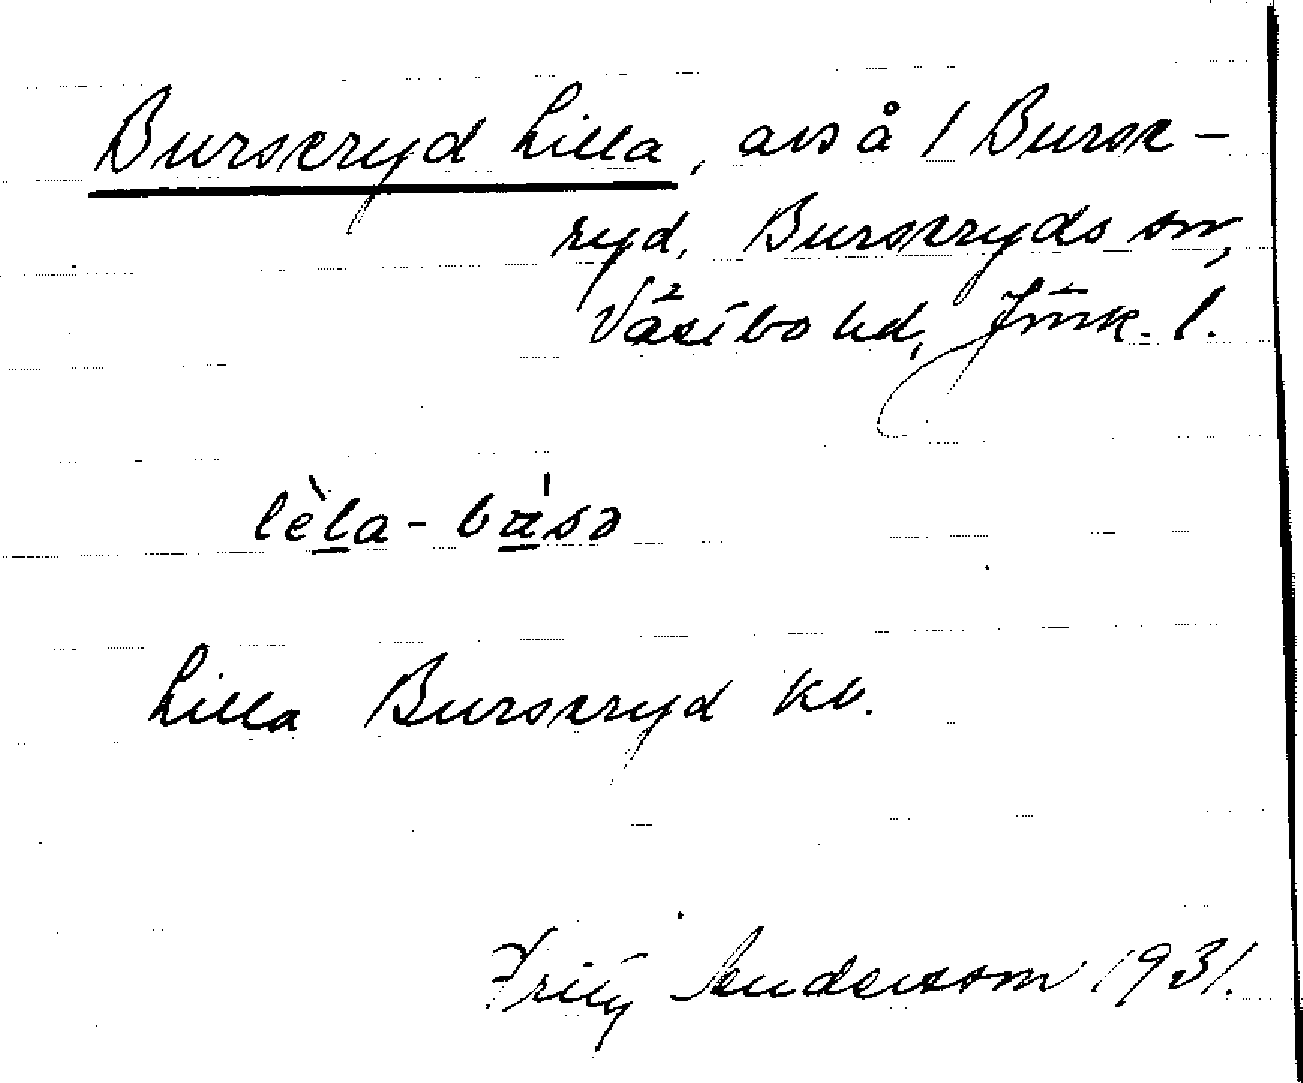 Burseryd Lilla, avs å 1 Burse-
ryd, Burseryds sn,
Västbo hd, Jönk. l.
lèla-básə
Lilla Burseryd kb.
Fritz Anderson 1931.